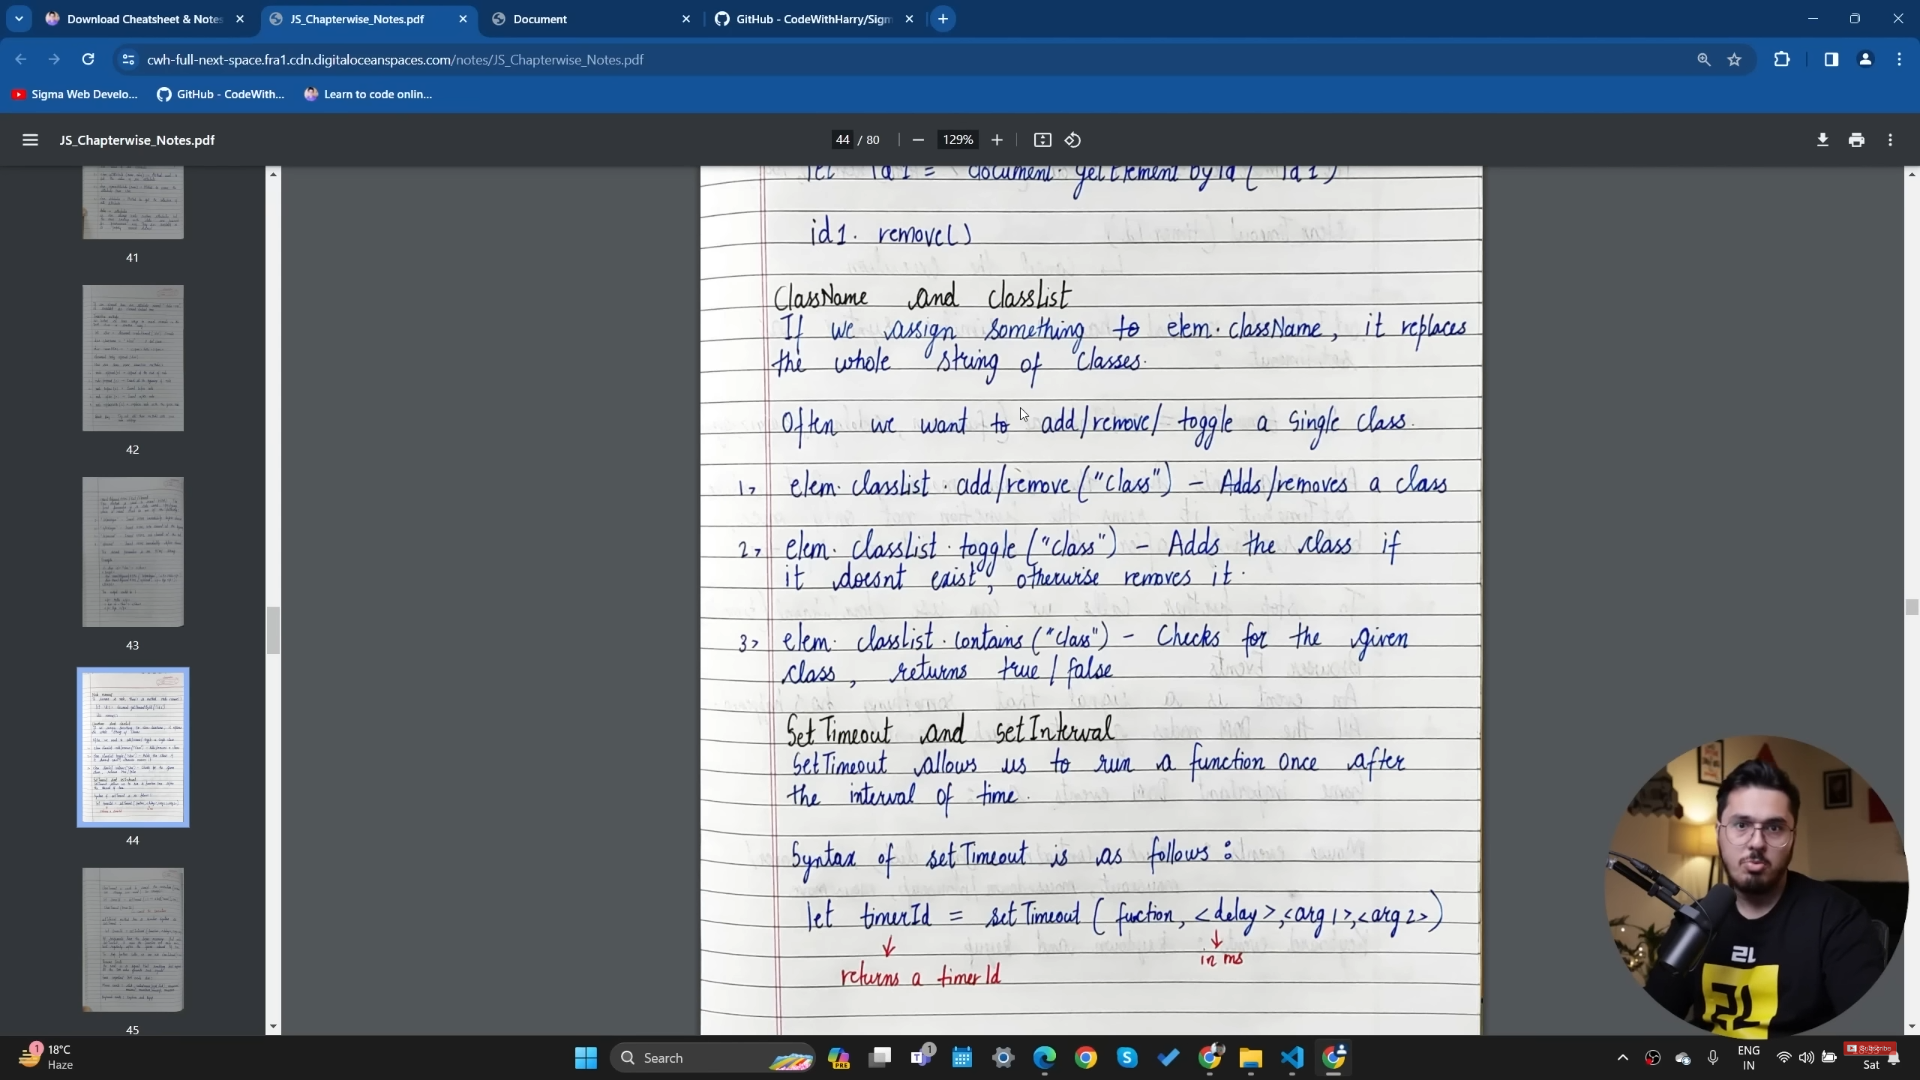 Download Cheatsheet & Notes
JS_Chapterwise_Notes.pdf
Document
GitHub - CodeWithHarry/Sigm
cwh-full-next-space.fra1.cdn.digitaloceanspaces.com/notes/JS_Chapterwise_Notes.pdf
Sigma Web Develo...
GitHub - CodeWith...
Learn to code onlin...
JS_Chapterwise_Notes.pdf
44 / 80
129%
41
42
43
44
45
let id1 = document.getElementbyId( id1 )
id1. remove()
ClassName and classlist
If we assign something to elem.className, it replaces
the whole string of classes.
Often we want to add/remove/ toggle a single class.
1> elem. classlist. add/remove ("class") - Adds/removes a class
2> elem. classList. toggle ("class") - Adds the class if
it doesnt exist, otherwise removes it.
3> elem. classlist. contains ("class") - Checks for the given
class, returns true/false
SetTimeout and setInterval
SetTimeout allows us to run a function once after
the interval of time.
Syntax of setTimeout is as follows :
let timerId = setTimeout ( function, <delay>,<arg1>,<arg2>)
in ms
returns a timerId
21
1
18°C
Haze
Search
PRE
1
ENG
IN
Subscribe
Sat